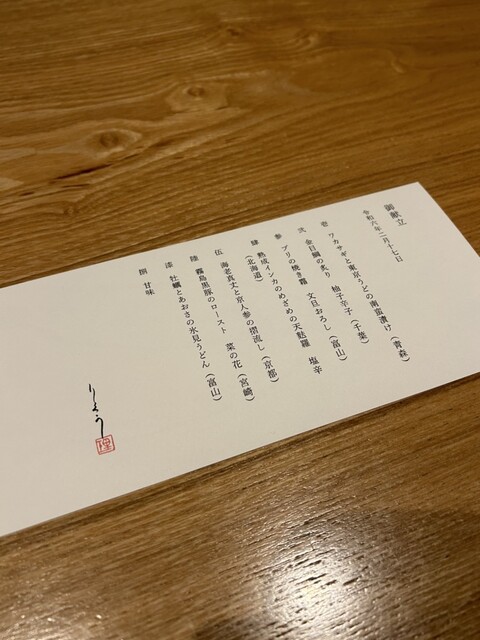 御献立
令和六年二月十七日
壱 ワカサギと東京うどの南蛮漬け（青森）
弐 金目鯛の炙り 柚子辛子（千葉）
参 ブリの焼き霜 文旦おろし（富山）
肆 熟成インカのめざめの天麩羅 塩辛
（北海道）
伍 海老真丈と京人参の摺流し（京都）
陸 霧島黒豚のロースト 菜の花（宮崎）
漆 牡蠣とあおさの氷見うどん（富山）
捌 甘味
りょう
理